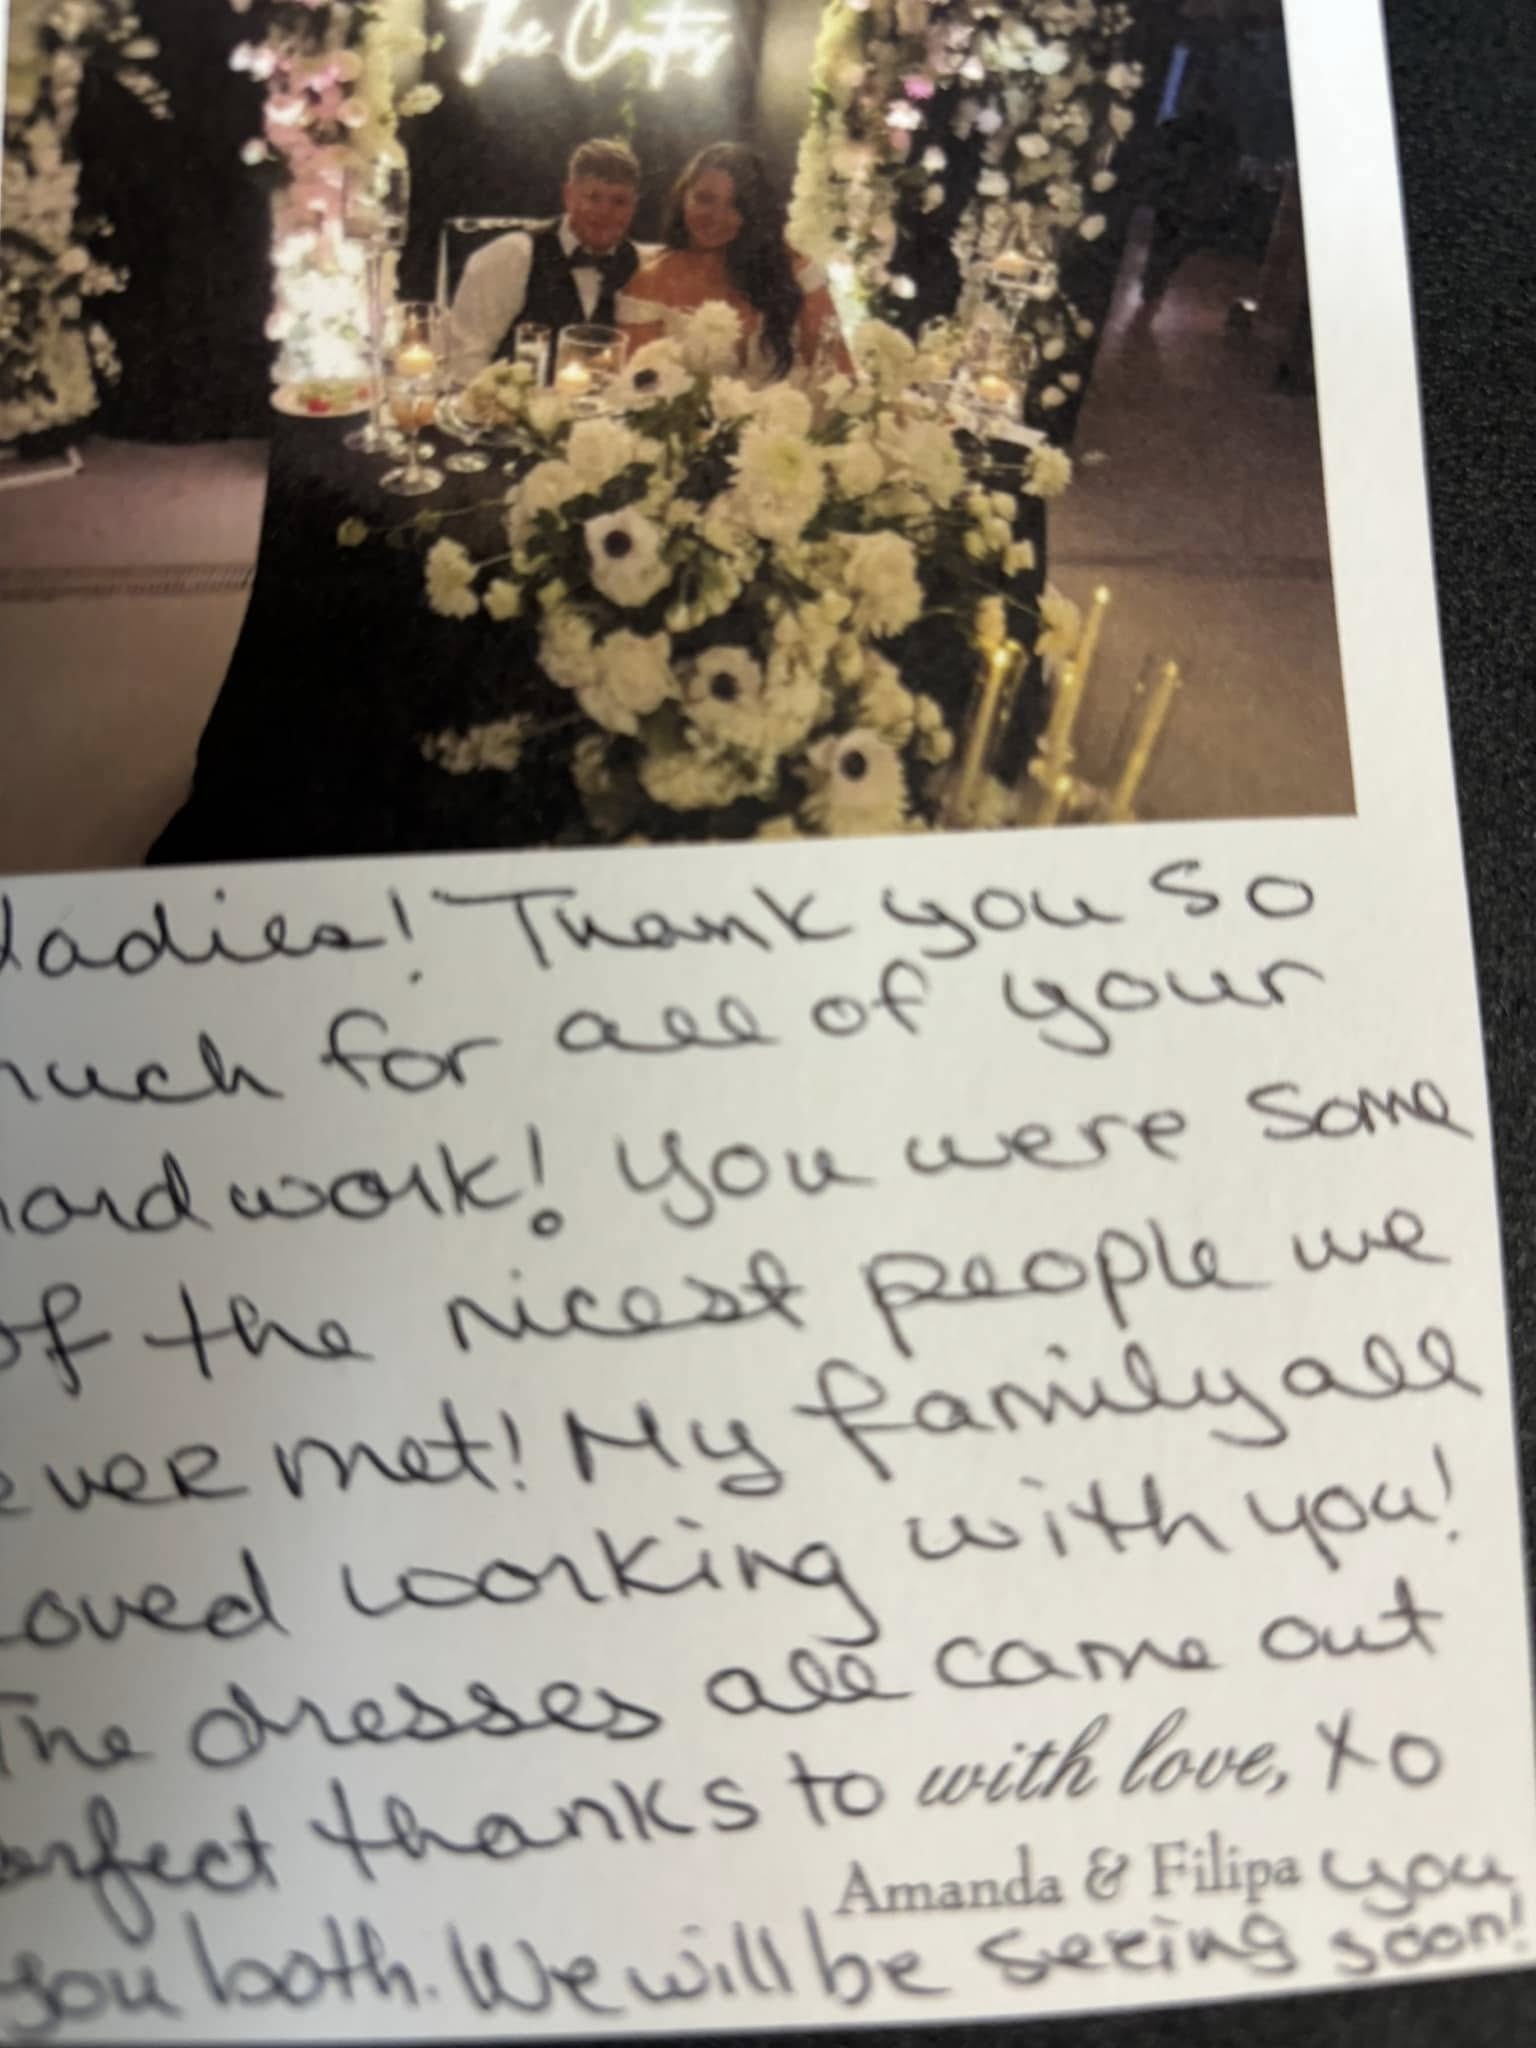 The Contes
Ladies! Thank you so
much for all of your
hard work! You were some
of the nicest people we
ever met! My family all
loved working with you!
The dresses all came out
perfect thanks to with love, xo
Amanda & Filipa you
you both. We will be seeing soon!